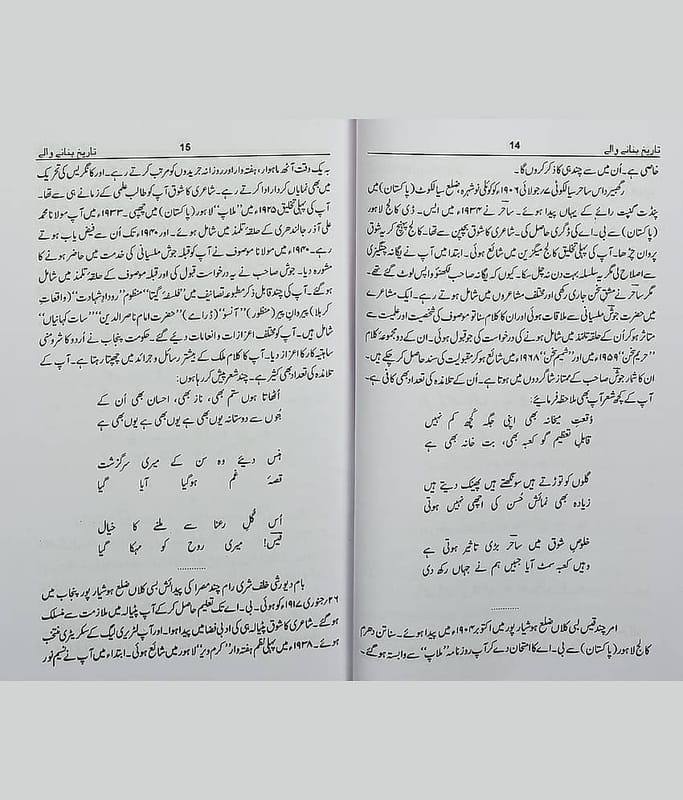 تاریخ بنانے والے 14
خاصی ہے۔ اُن میں سے چند ہی کا ذکر کروں گا۔
رگھبیر داس ساحر سیالکوٹی ۷؍جولائی ۱۹۰۶ء کو کوٹلی نوشہرہ، ضلع سیالکوٹ (پاکستان) میں
پنڈت گنپت رائے کے یہاں پیدا ہوئے۔ ساحر نے ۱۹۳۴ء میں ایس۔ ڈی کالج لاہور
(پاکستان) سے بی۔اے کی ڈگری حاصل کی۔ شاعری کا شوق بچپن سے تھا۔ کالج پہنچ کر یہ شوق
پروان چڑھا۔ آپ کی پہلی تخلیق کالج میگزین میں شائع ہوئی۔ ابتدا میں آپ نے یگانہ چنگیزی
سے اصلاح لی مگر یہ سلسلہ بہت دن نہ چل سکا۔ کیوں کہ یگانہ صاحب لکھنؤ واپس لوٹ گئے تھے۔
مگر ساحر نے مشق سخن جاری رکھی اور مختلف مشاعروں میں شامل ہوتے رہے۔ ایک مشاعرے
میں حضرت جوش ملسیانی سے ملاقات ہوئی اور ان کا کلام سنا تو موصوف کی شخصیت اور علمیت سے
متاثر ہو کر اُن کے حلقہ تلمذ میں شامل ہونے کی درخواست کی جو قبول ہوئی۔ ان کے دو مجموعۂ کلام
’’حریم سخن‘‘ ۱۹۵۹ء میں اور ’’شمیم سخن‘‘ ۱۹۶۸ء میں شائع ہو کر مقبولیت کی سند حاصل کر چکے ہیں۔
ان کا شمار جوش صاحب کے ممتاز شاگردوں میں ہوتا ہے۔ اُن کے تلامذہ کی تعداد بھی کافی ہے۔
آپ کے کچھ شعر آپ بھی ملاحظہ فرمایئے:
وُقعتِ میخانہ بھی اپنی جگہ کُچھ کم نہیں
قابلِ تعظیم گو کعبہ بھی، بت خانہ بھی ہے
گلوں کو توڑتے ہیں سونگھتے ہیں پھینک دیتے ہیں
زیادہ بھی نمائش حُسن کی اچھی نہیں ہوتی
خلوصِ شوق میں ساحر بڑی تاثیر ہوتی ہے
وہیں کعبہ سمٹ آیا جبیں ہم نے جہاں رکھ دی
..........
امر چند قیس بسی کلاں ضلع ہوشیار پور میں اکتوبر ۱۹۰۴ء میں پیدا ہوئے۔ سناتن دھرم
کالج لاہور (پاکستان) سے بی۔اے کا امتحان دے کر آپ روزنامہ ’’ملاپ‘‘ سے وابستہ ہو گئے۔
تاریخ بنانے والے 15
بہ یک وقت آٹھ ماہوار، ہفتہ وار اور روزانہ جریدوں کو مرتب کرتے رہے۔ اور کانگریس کی تحریک
میں بھی نمایاں کردار ادا کرتے رہے۔ شاعری کا شوق آپ کو طالب علمی کے زمانے ہی سے تھا۔
آپ کی پہلی تخلیق ۱۹۲۵ء میں ’’ملاپ‘‘ لاہور (پاکستان) میں چھپی۔ ۱۹۳۳ء میں آپ مولانا محمد
علی آذر جالندھری کے حلقۂ تلمذ میں شامل ہوئے۔ اور ۱۹۴۰ء تک اُن سے فیض یاب ہوتے
رہے۔ ۱۹۴۰ء میں مولانا موصوف نے آپ کو قبلہ جوش ملسیانی کی خدمت میں حاضر ہونے کا
مشورہ دیا۔ جوش صاحب نے یہ درخواست قبول کی اور قبلہ موصوف کے حلقۂ تلمذ میں شامل
ہو گئے۔ آپ کی چند قابل ذکر مطبوعہ تصانیف میں ’’فلسفۂ گیتا‘‘ منظوم ’’رودادِ شہادت‘‘ (واقعاتِ
کربلا) پیروانِ پیر (منظور) ’’آنسو‘‘ (ڈرامے) ’’حضرت امام ناصر الدین‘‘ ’’سات کہانیاں‘‘
شامل ہیں۔ آپ کو مختلف اعزازات و انعامات دئیے گئے۔ حکومت پنجاب نے اُردو کا شرومنی
ساہتیہ کار کا اعزاز دیا۔ آپ کا کلام ملک کے بیشتر رسائل و جرائد میں چھپتا رہتا ہے۔ آپ کے
تلامذہ کی تعداد بھی کثیر ہے۔ چند شعر پیش کر رہا ہوں:
اُٹھاتا ہوں ستم بھی، ناز بھی، احسان بھی اُن کے
بُتوں سے دوستانہ یوں بھی ہے یوں بھی ہے یوں بھی ہے
ہنس دیئے وہ سن کے میری سرگزشت
قصۂ غم ہو گیا آیا گیا
اُس گُلِ رعنا سے ملنے کا خیال
قیس! میری روح کو مہکا گیا
..........
بام دیو رشی خلف شری رام چند مصرا کی پیدائش بسی کلاں ضلع ہوشیار پور پنجاب میں
۲۶؍جنوری ۱۹۱۷ء کو ہوئی۔ بی۔اے تک تعلیم حاصل کر کے آپ پٹیالہ میں ملازمت سے منسلک
ہو گئے۔ شاعری کا شوق پٹیالہ ہی کی ادبی فضا میں پیدا ہوا۔ اور آپ لٹریری لیگ کے سکریٹری منتخب
ہوئے۔ ۱۹۳۸ء میں پہلی نظم ہفتہ وار ’’کرم ویر‘‘ لاہور میں شائع ہوئی۔ ابتداء میں آپ نے نسیم نور